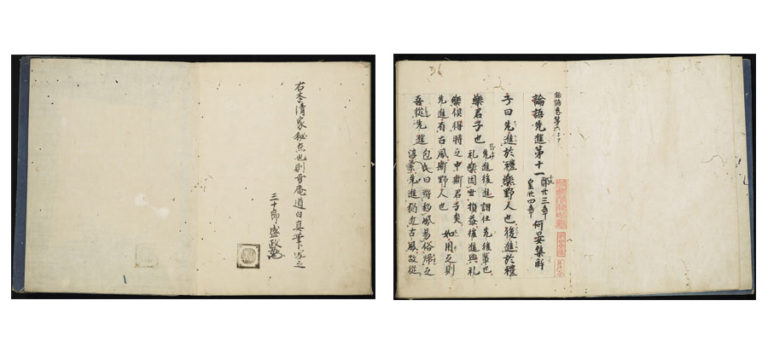 右本清家秘点也則青庵道白真筆以写之
三十郎盛政
論語先進第十一 鄭廿三章 何晏集解
皇廿四章
子曰先進於禮樂野人也後進於禮
樂君子也 先進後進謂仕先後輩也
礼樂因世損益後進與礼
樂俱得時之中斯君子矣 如用之則
先進有古風斯野人也
吾從先進 包氏曰將移風易俗歸之
淳素先進猶近古風故從